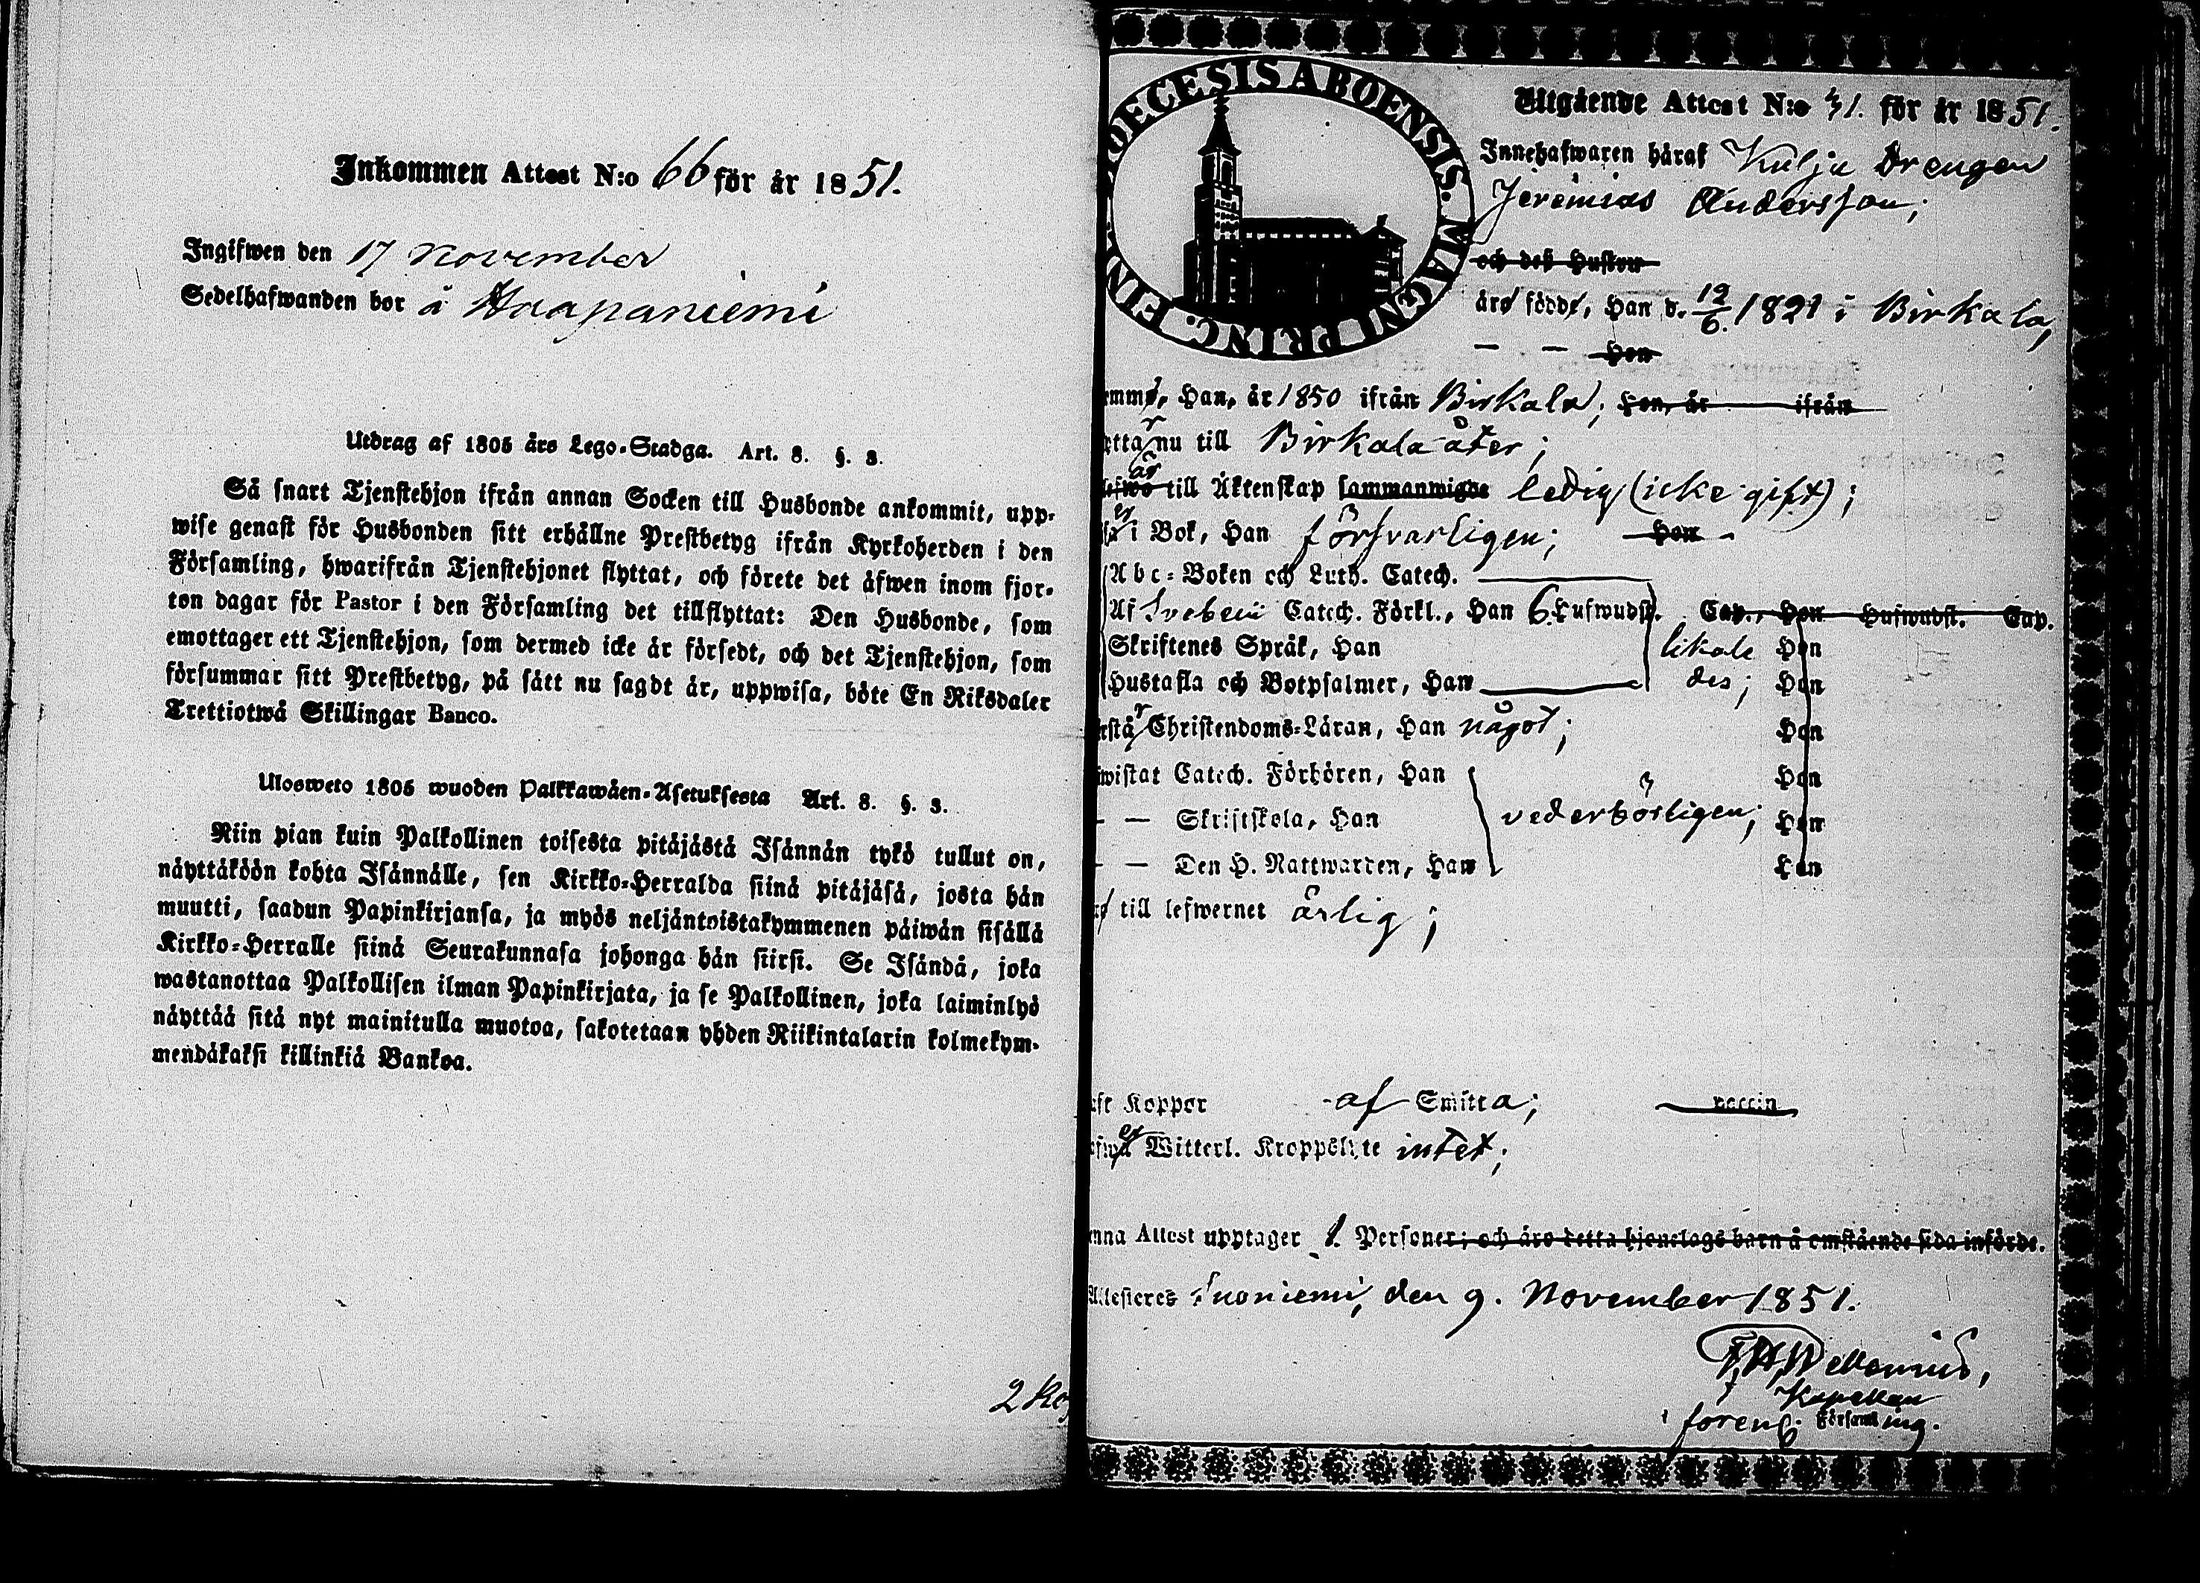 Inkommen Attest N:o 66 för år 1851.
Ingifwen den 17 November
Sedelhafwanden bor å Haapaniemi
Utdrag af 1805 års Lego-Stadga. Art. 8. §. 3.
Så snart Tjenstehjon ifrån annan Socken till Husbonde ankommit, upp-
wise genast för Husbonden sitt erhållne Prestbetyg ifrån Kyrkoherden i den
Församling, hwarifrån Tjenstehjonet flyttat, och förete det äfwen inom fjor-
ton dagar för Pastor i den Församling det tillflyttat: Den Husbonde, som
emottager ett Tjenstehjon, som dermed icke är försedt, och det Tjenstehjon, som
försummar sitt Prestbetyg, på sätt nu sagdt är, uppwisa, böte En Riksdaler
Trettiotwå Skillingar Banco.
Ulosweto 1805 wuoden Palkkawäen-Asetuksesta Art. 8. §. 3.
Niin pian kuin Palkollinen toisesta pitäjästä Isännän tykö tullut on,
näyttäköön kohta Isännälle, sen Kirkko-Herralda siinä pitäjäsä, josta hän
muutti, saadun Papinkirjansa, ja myös neljäntoistakymmenen päiwän sisällä
Kirkko-Herralle siinä Seurakunnasa johonga hän siirsi. Se Isändä, joka
wastanottaa Palkollisen ilman Papinkirjata, ja se Palkollinen, joka laiminlyö
näyttää sitä nyt mainitulla muotoa, sakotetaan yhden Riikintalarin kolmekym-
mendäkaksi killinkiä Bankoa.
2 Kop
DIOECESIS ABOENSIS. MAGNI PRINC. FIN
Utgående Attest N:o 31. för år 1851.
Innehafwaren häraf Kulja Drengen
Jeremias Andersson;
och deß Hustru
äro födde, Han d. 12/6. 1821 i Birkala,
— — Hon
emme, Han, år 1850 ifrån Birkala; Hon, år ifrån
etta r nu till Birkala åter;
är
lefwo till Äktenskap sammanwigde ledig (icke gift);
er i Bok, Han försvarligen; Hon
Abc-Boken och Luth. Catech.
Af Svebelii Catech. Förkl., Han 6 Hufwudst. Cap., Hon Hufwudst. Cap.
Skriftenes Språk, Han likale Hon
Hustafla och Botpsalmer, Han des; Hon
rstå r Christendoms-Läran, Han något; Hon
iwistat Catech. Förhören, Han Hon
— — Skriftskola, Han vederbörligen; Hon
— — Den H. Nattwarden, Han Hon
till lefwernet ärlig;
ft Koppor af Smitta; vaccin
er Witterl. Kroppslyte intet;
nna Attest upptager 1. Personer; och äro detta hjonelags barn å omstående sida införde.
Attesteres Suoniemi, den 9. November 1851.
Kapellan
i foren. Församling.